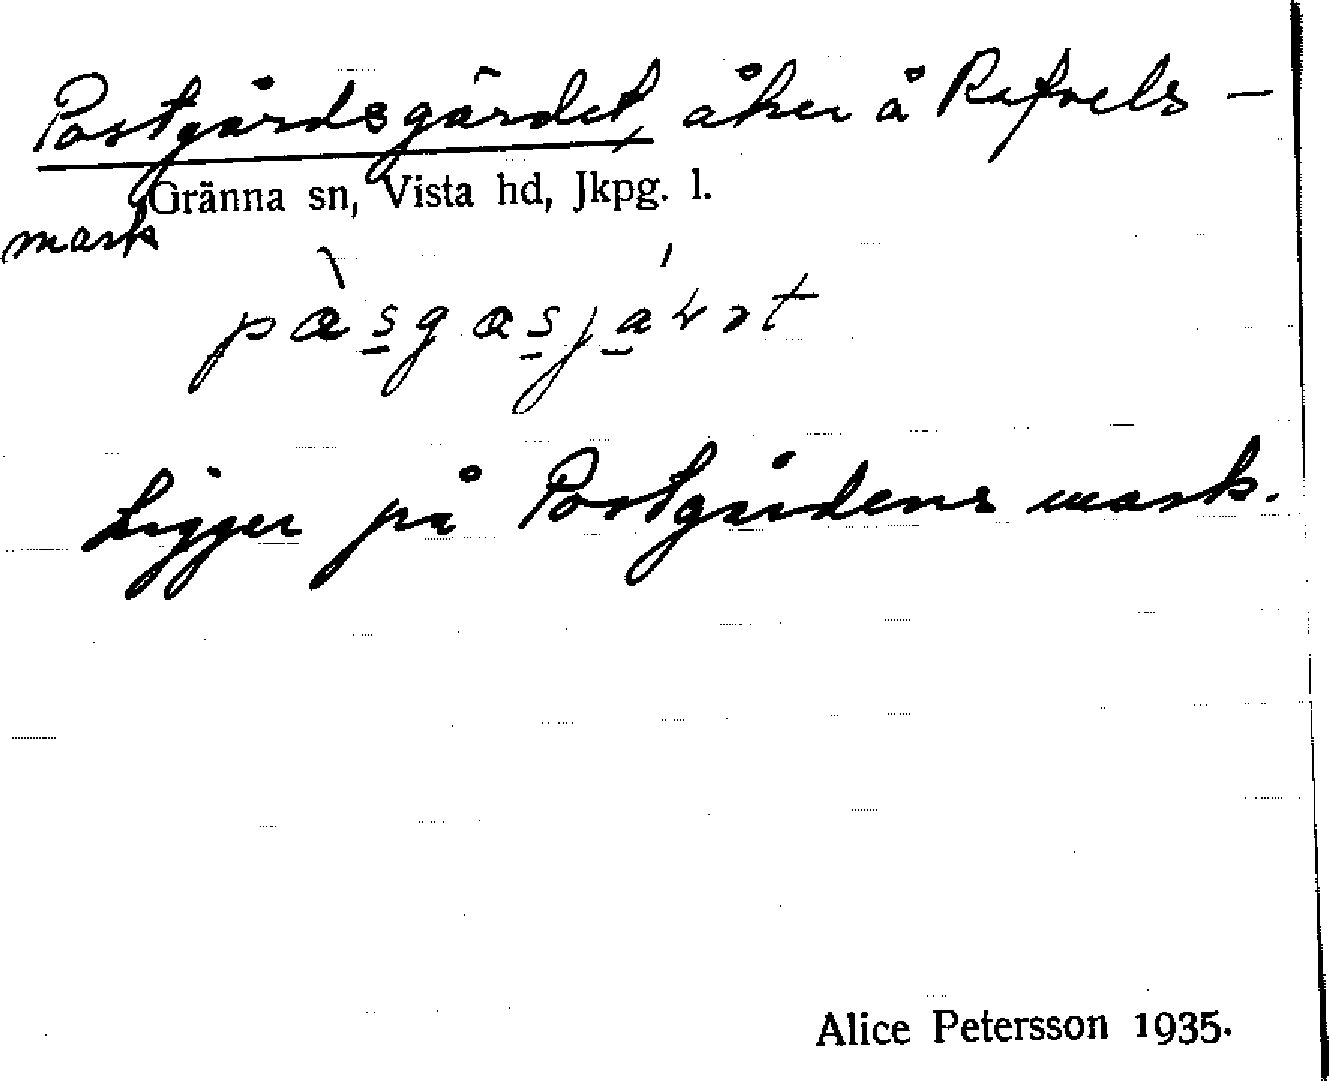 Postgårdsgärdet, åker å Refvels-
Gränna sn, Vista hd, Jkpg. l.
mark
Ligger på Postgårdens mark.
Alice Petersson 1935.